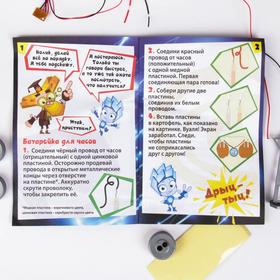 1
Нолик, делай
всё по порядку.
Я тебе подскажу.
Я постараюсь.
Только ты
говори быстрее,
а то уж так охота
посмотреть,
что получится!
Итак,
приступим!
Батарейка для часов
1. Соедини чёрный провод от часов
(отрицательный) с одной цинковой
пластиной. Осторожно продевай
провода в открытые металлические
концы через отверстие
на пластине*. Аккуратно
скрути проволоку,
чтобы закрепить её.
*Медная пластина - коричневого цвета,
цинковая пластина - серебристо-серого цвета
2
2. Соедини красный
провод от часов
(положительный)
с одной медной
пластиной. Первая
соединяющая пара готова!
3. Собери другие две
пластины,
соединив их белым
проводом.
4. Вставь пластины
в картофель, как показано
на картинке. Вуаля! Экран
заработал. Следи,
чтобы пластины
не соприкасались
друг с другом!
Дрыц-
тыц!